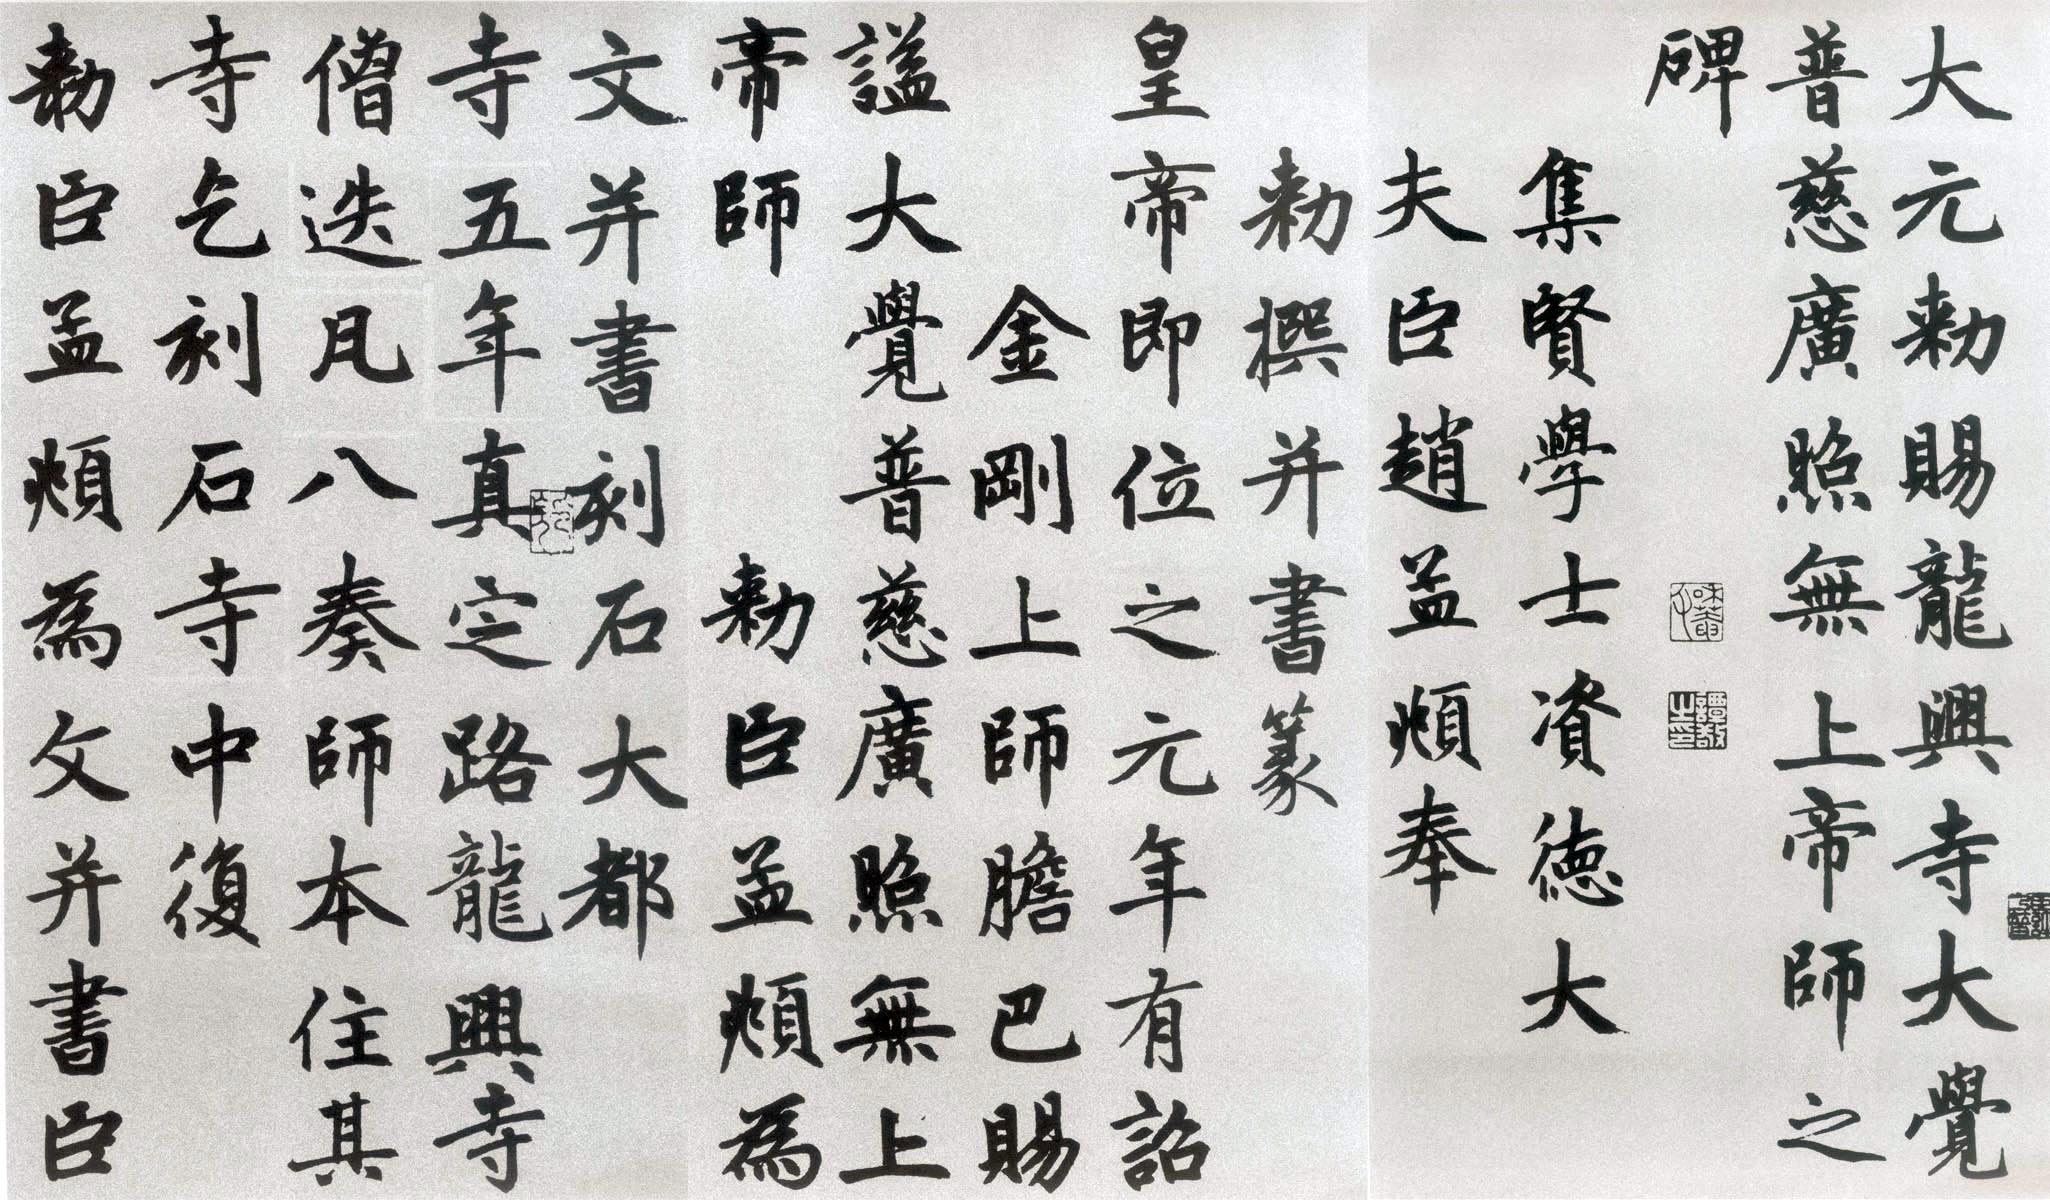 大元勑賜龍興寺大覺
普慈廣照無上帝師之
碑
集賢學士資德大
夫臣趙孟頫奉
勑撰并書篆
皇帝即位之元年有詔
金剛上師膽巴賜
謚大覺普慈廣照無上
帝師勑臣孟頫為
文并書刻石大都
寺五年真定路龍興寺
僧迭凡八奏師本住其
寺乞刻石寺中復
勑臣孟頫為文并書臣